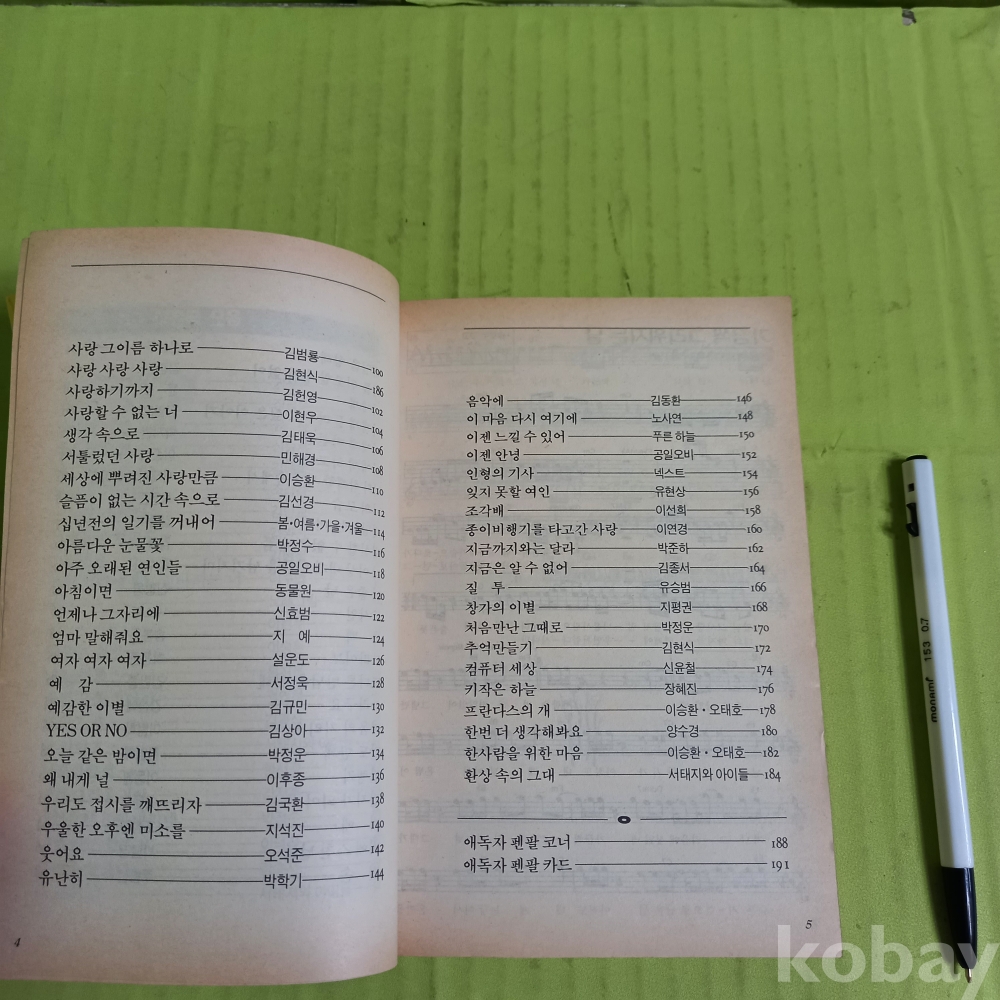 사랑 그이름 하나로 김범룡 100
사랑 사랑 사랑 김현식 186
사랑하기까지 김헌영 102
사랑할 수 없는 너 이현우 104
생각 속으로 김태욱 106
서툴렀던 사랑 민해경 108
세상에 뿌려진 사랑만큼 이승환 110
슬픔이 없는 시간 속으로 김선경 112
십년전의 일기를 꺼내어 봄·여름·가을·겨울 114
아름다운 눈물꽃 박정수 116
아주 오래된 연인들 공일오비 118
아침이면 동물원 120
언제나 그자리에 신효범 122
엄마 말해줘요 지 예 124
여자 여자 여자 설운도 126
예 감 서정욱 128
예감한 이별 김규민 130
YES OR NO 김상아 132
오늘 같은 밤이면 박정운 134
왜 내게 널 이후종 136
우리도 접시를 깨뜨리자 김국환 138
우울한 오후엔 미소를 지석진 140
웃어요 오석준 142
유난히 박학기 144
4
음악에 김동환 146
이 마음 다시 여기에 노사연 148
이젠 느낄 수 있어 푸른 하늘 150
이젠 안녕 공일오비 152
인형의 기사 넥스트 154
잊지 못할 여인 유현상 156
조각배 이선희 158
종이비행기를 타고간 사랑 이연경 160
지금까지와는 달라 박준하 162
지금은 알 수 없어 김종서 164
질 투 유승범 166
창가의 이별 지평권 168
처음만난 그때로 박정운 170
추억만들기 김현식 172
컴퓨터 세상 신윤철 174
키작은 하늘 장혜진 176
프란다스의 개 이승환·오태호 178
한번 더 생각해봐요 양수경 180
한사람을 위한 마음 이승환·오태호 182
환상 속의 그대 서태지와 아이들 184
애독자 펜팔 코너 188
애독자 펜팔 카드 191
5
monami 153 0.7
kobay